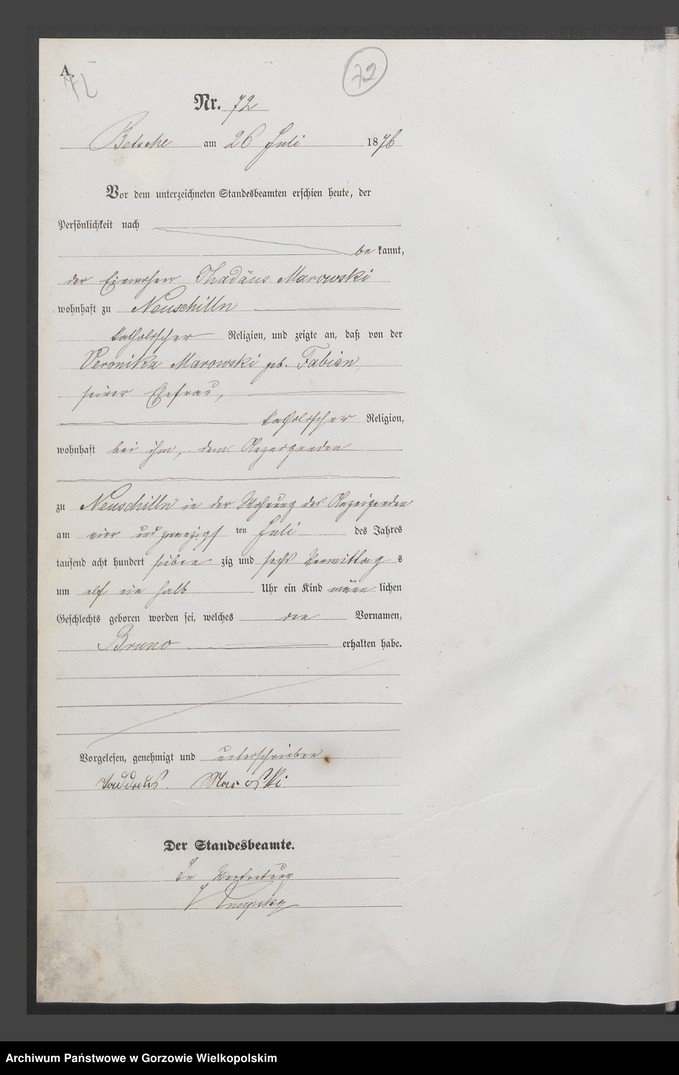 A.
72
72
Nr. 72
Betsche am 26 Juli 1876
Vor dem unterzeichneten Standesbeamten erschien heute, der
Persönlichkeit nach
bekannt,
der Einwohner Thadäus Marowski
wohnhaft zu Neuschilln
katholischer Religion, und zeigte an, daß von der
Veronika Marowski geb. Fabian,
seiner Ehefrau,
katholischer Religion,
wohnhaft bei ihm, dem Anzeigenden
zu Neuschilln in der Wohnung des Anzeigenden
am vier und zwanzigsten Juli des Jahres
tausend acht hundert siebenzig und sechs Vormittags
um elf ein halb Uhr ein Kind männlichen
Geschlechts geboren worden sei, welches den Vornamen,
Bruno erhalten habe.
Vorgelesen, genehmigt und unterschrieben
Der Standesbeamte.
In Vertretung
Archiwum Państwowe w Gorzowie Wielkopolskim